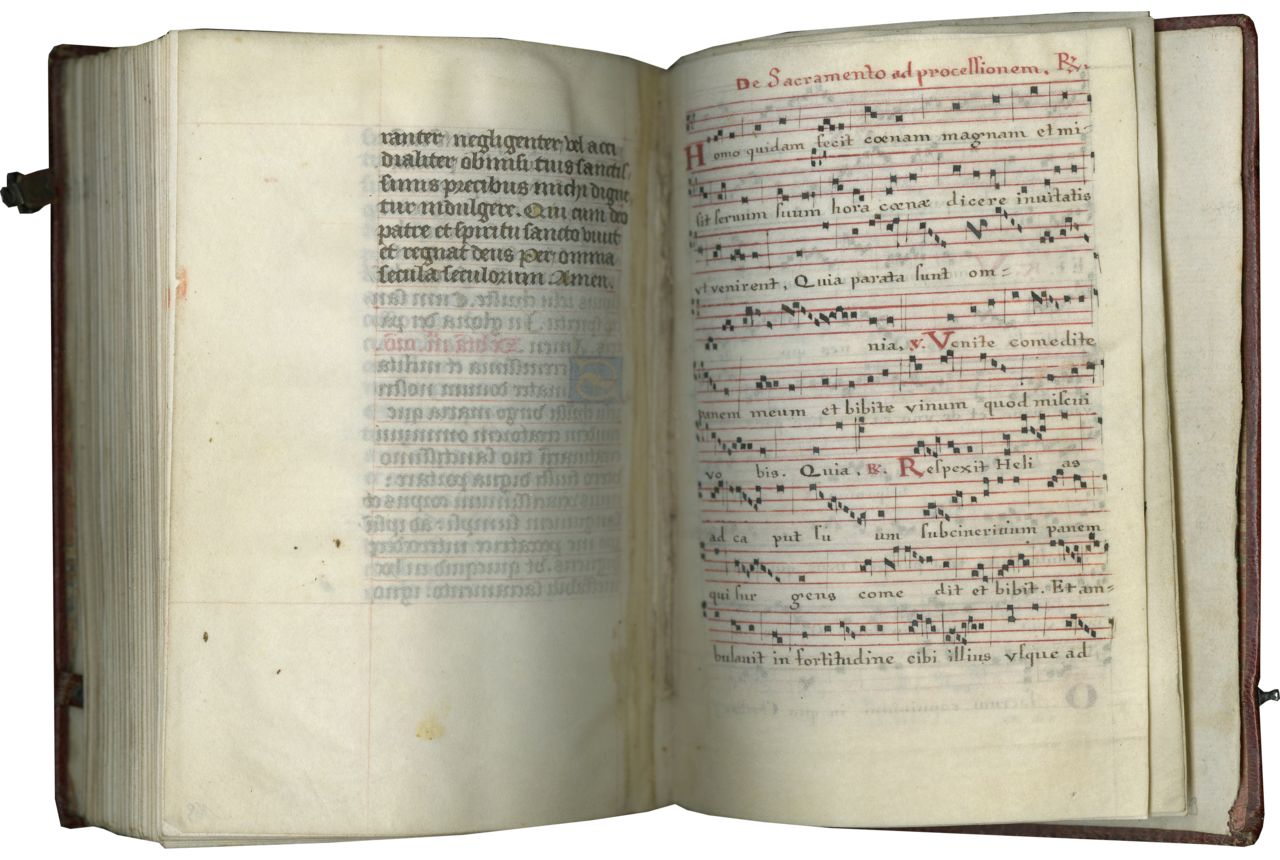 ranter negligenter vel acci
dialiter obmisi tuis sanctis
simis precibus michi digne
tur indulgere. Qui cum deo
patre et spiritu sancto vivit
et regnat deus per omnia
secula seculorum Amen.
De Sacramento ad processionem. R.
Homo quidam fecit cœnam magnam et mi-
sit servum suum hora cœnæ dicere invitatis
vt venirent, Quia parata sunt om-
nia. v. Venite comedite
panem meum et bibite vinum quod miscui
vo bis. Quia. R. Respexit Heli as
ad ca put su um subcineritium panem
qui sur gens come dit et bibit. Et am-
bulavit in fortitudine cibi illius vsque ad